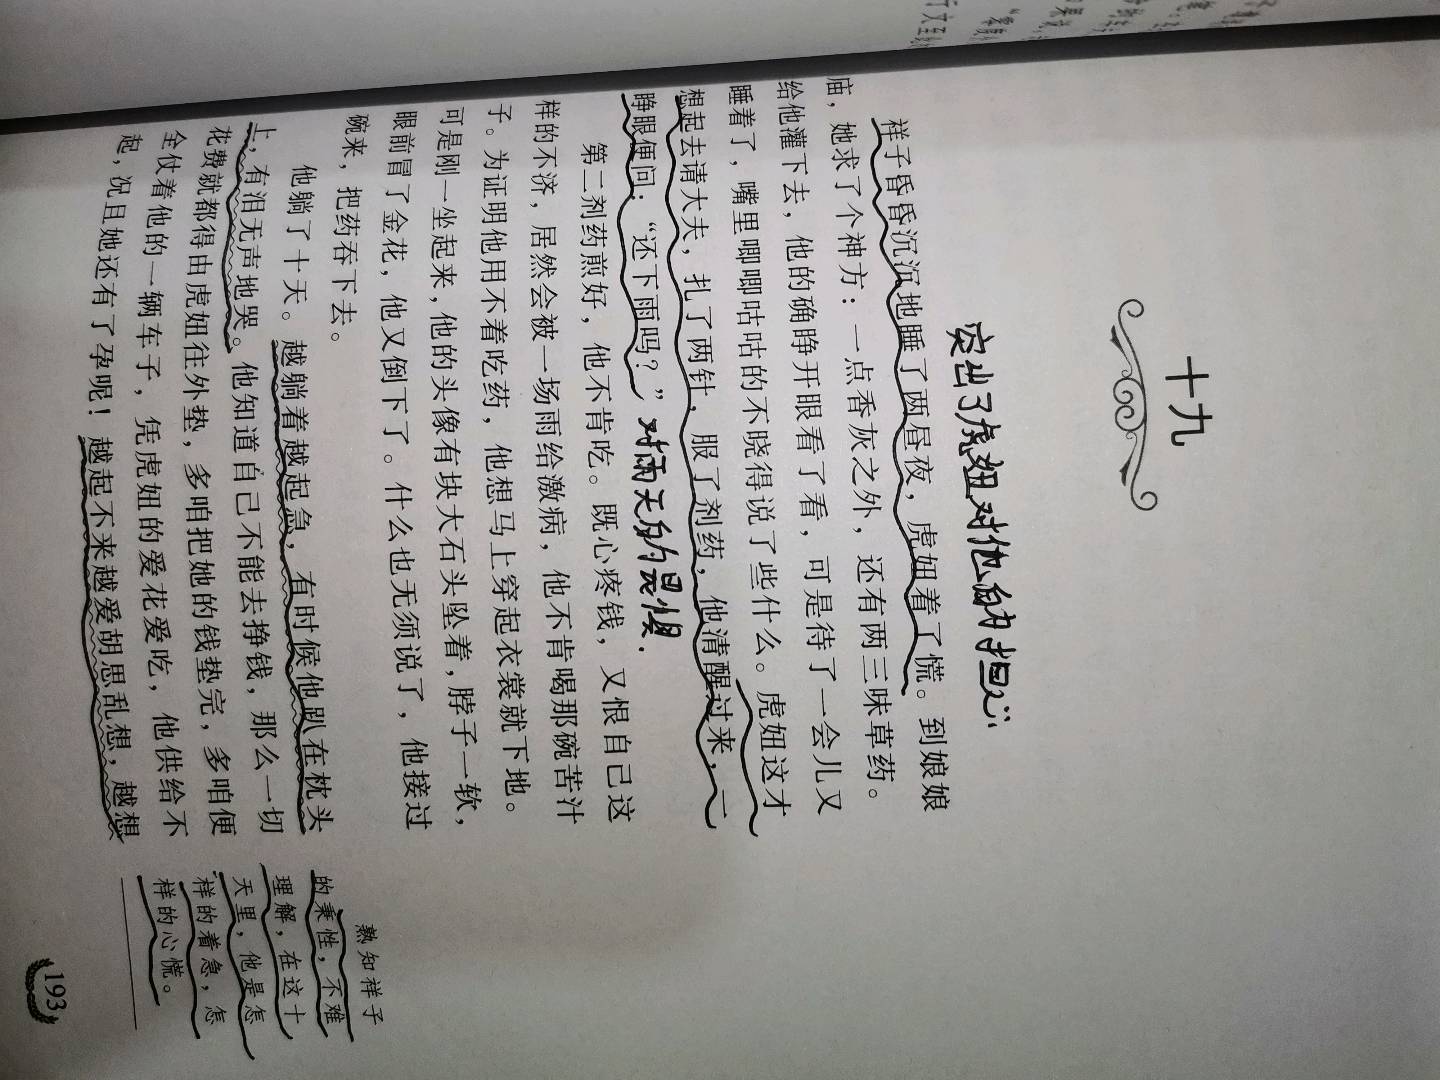 十九
突出了虎妞对他的担心
祥子昏昏沉沉地睡了两昼夜，虎妞着了慌。到娘娘
庙，她求了个神方：一点香灰之外，还有两三味草药。
给他灌下去，他的确睁开眼看了看，可是待了一会儿又
睡着了，嘴里唧唧咕咕的不晓得说了些什么。虎妞这才
想起去请大夫，扎了两针，服了剂药，他清醒过来，一
睁眼便问：“还下雨吗？”
对雨天的畏惧.
第二剂药煎好，他不肯吃。既心疼钱，又恨自己这
样的不济，居然会被一场雨给激病，他不肯喝那碗苦汁
子。为证明他用不着吃药，他想马上穿起衣裳就下地。
可是刚一坐起来，他的头像有块大石头坠着，脖子一软，
眼前冒了金花，他又倒下了。什么也无须说了，他接过
碗来，把药吞下去。
他躺了十天。越躺着越起急，有时候他趴在枕头
上，有泪无声地哭。他知道自己不能去挣钱，那么一切
花费就都得由虎妞往外垫，多咱把她的钱垫完，多咱便
全仗着他的一辆车子，凭虎妞的爱花爱吃，他供给不
起，况且她还有了孕呢！越起不来越爱胡思乱想，越想
熟知祥子
的秉性，不难
理解，在这十
天里，他是怎
样的着急，怎
样的心慌。
193